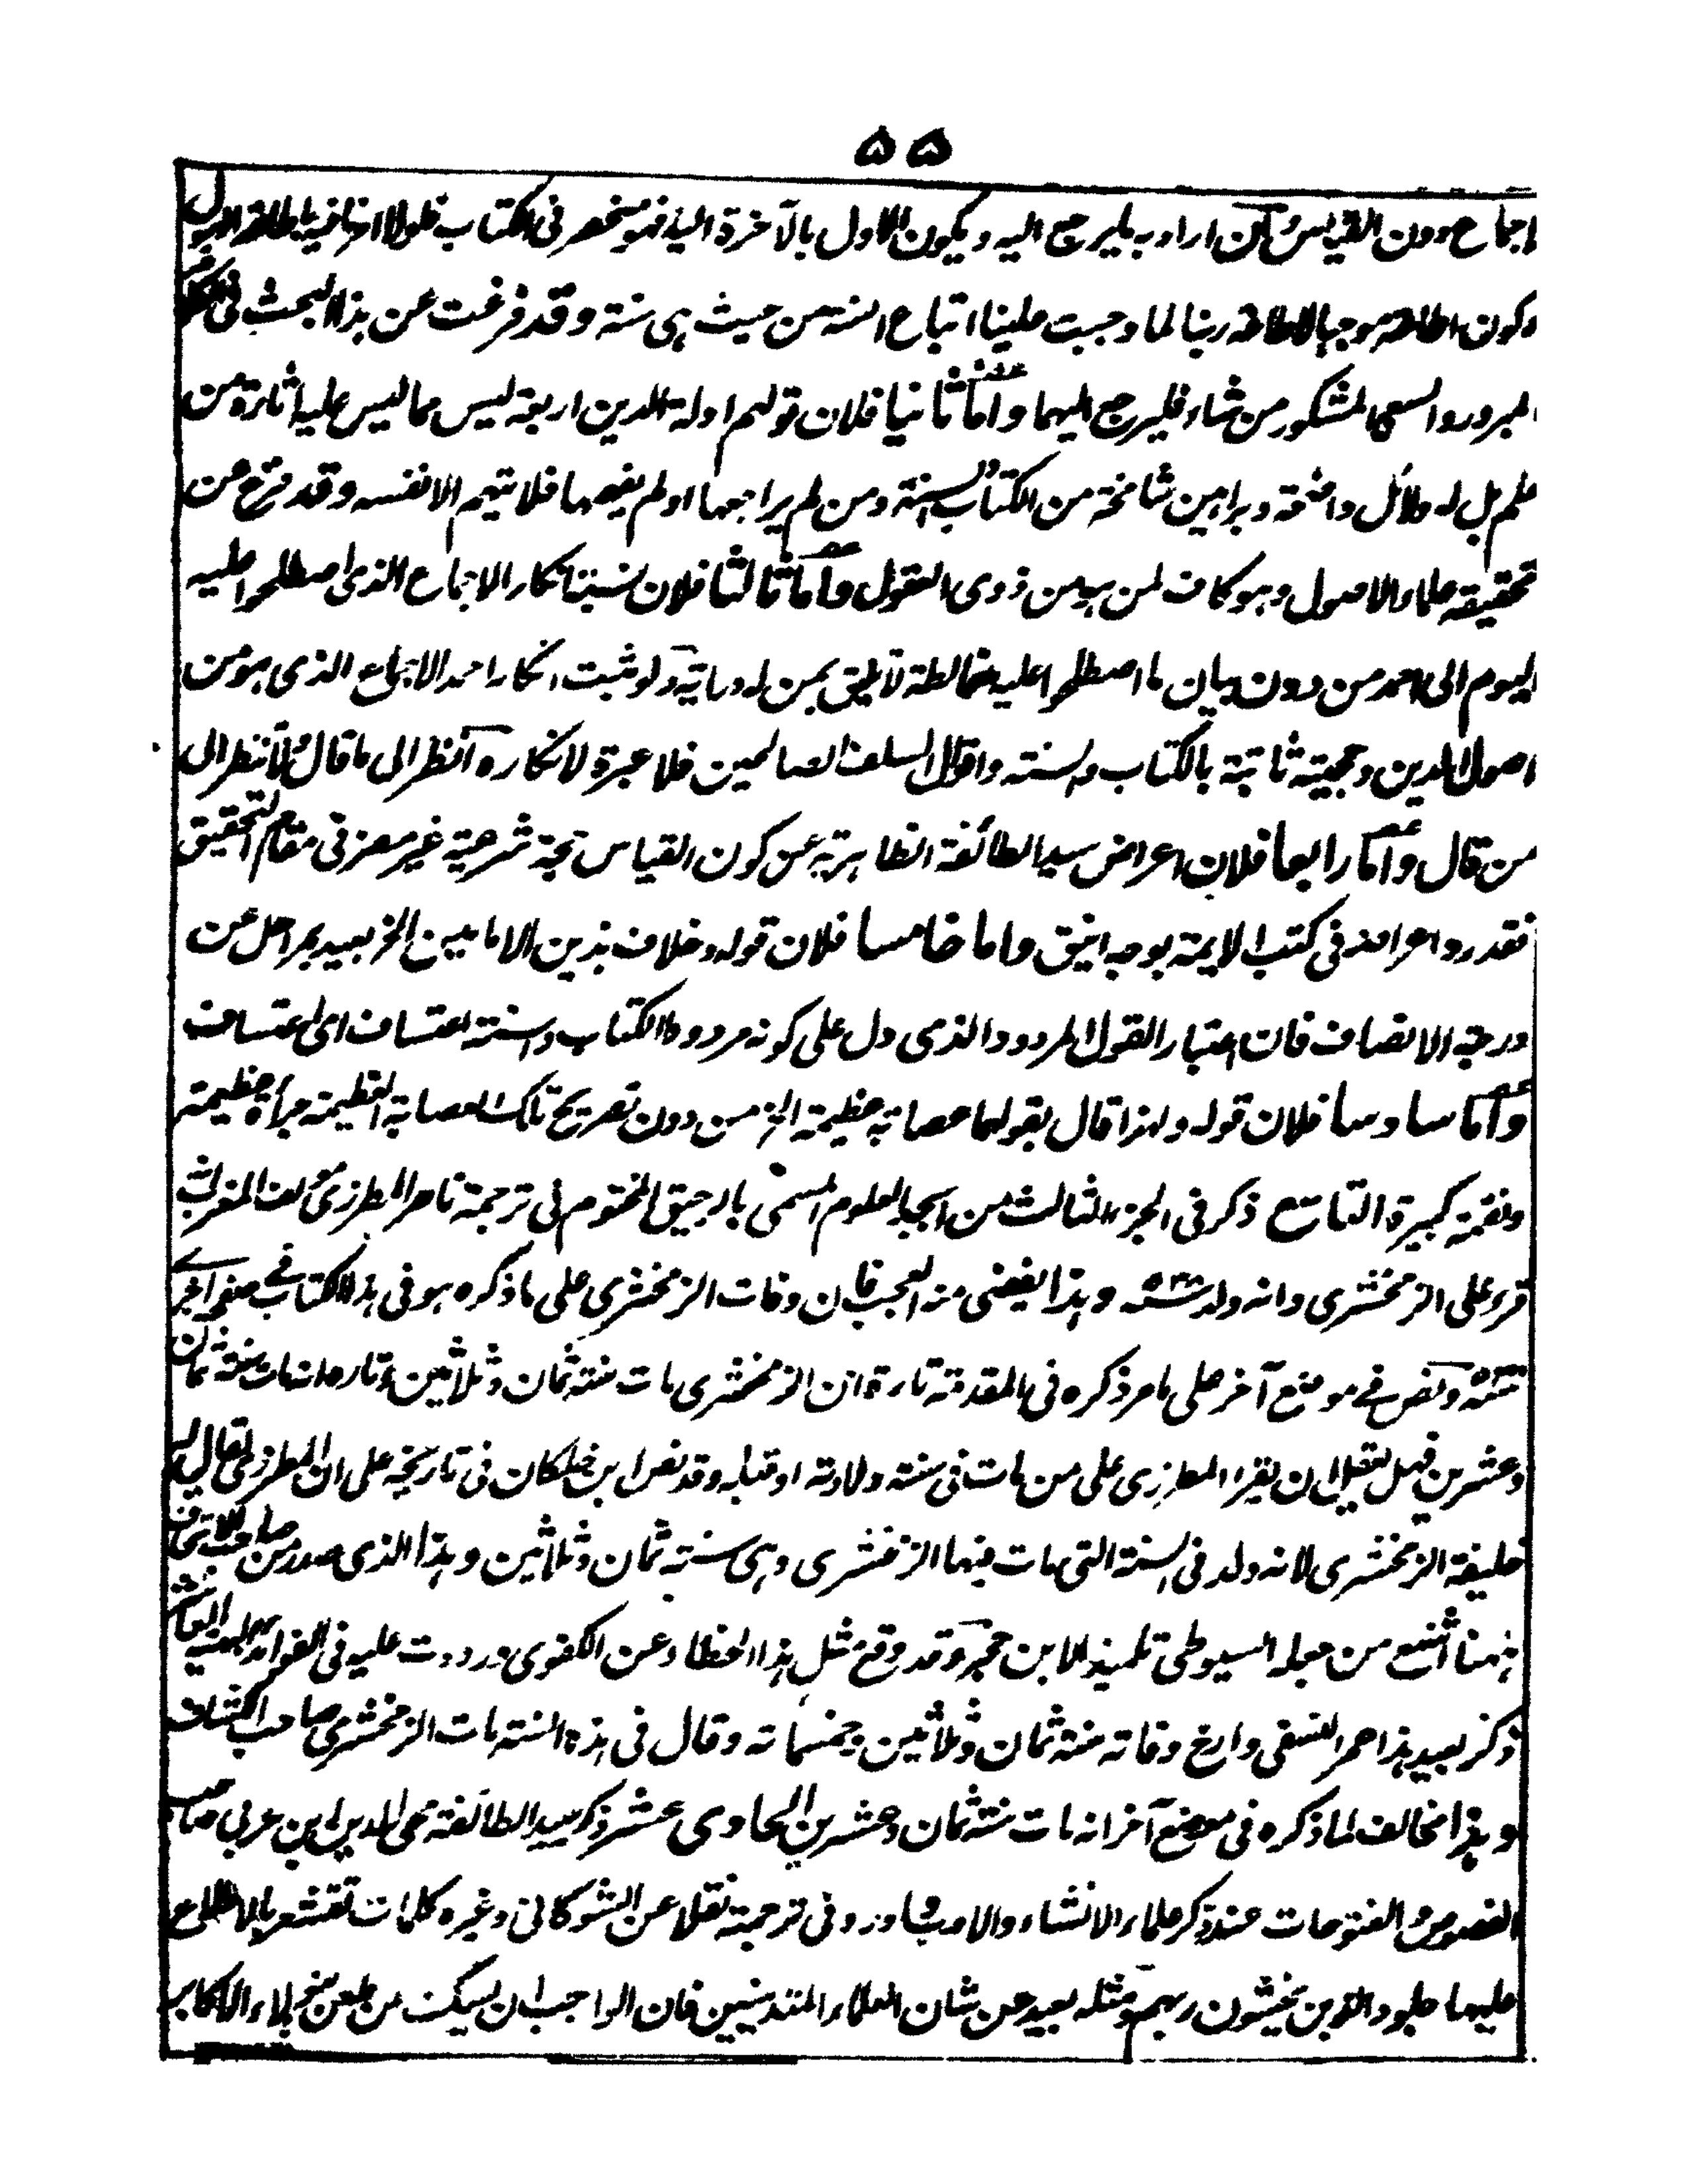 ٥٥
اجماع دون القياس وان اراد به ما يرجع اليه ويكون الاول بالآخرة اليه فهو منحصر في الكتاب فلولا امرنا فيه باطاعة الرسول
وكون اطاعته موجبا لاطاعة ربنا لما وجبت علينا اتباع السنة من حيث هي سنة وقد فرغت عن هذا البحث في الكلام
المبرور والسعي المشكور من شاء فليرجع اليهما واما ثانيا فلان قولهم ادلة الدين اربعة ليس مما ليس عليه اثارة من
علم بل له دلائل واضحة وبراهين شامخة من الكتاب والسنة ومن لم يراجعها او لم يفهمها فلا يتهم الا نفسه وقد فرغ عن
تحقيقه علماء الاصول وهو كاف لمن هو من ذوي العقول واما ثالثا فلان نسبة انكار الاجماع الذي اصطلحوا عليه
اليوم الى احمد من دون بيان ما اصطلحوا عليه مغالطة لا تليق بمن له دراية ولو ثبت انكار احمد الاجماع الذي هو من
اصول الدين وحجيته ثابتة بالكتاب والسنة واقوال السلف الصالحين فلا عبرة لانكاره انظر الى ما قال ولا تنظر الى
من قال واما رابعا فلان اعراض سيد الطائفة الظاهرية عن كون القياس حجة شرعية غير مضر في مقام التحقيق
فقد رد اعراضه في كتب الايمة بوجه انيق واما خامسا فلان قوله وخلاف هذين الامامين الخ بعيد بمراحل عن
درجة الانصاف فان اعتبار القول المردود الذي دل على كونه مردودا الكتاب والسنة اعتساف اي اعتساف
واما سادسا فلان قوله ولهذا قال بقولهما عصابة عظيمة الخ من دون تصريح تلك العصابة العظيمة جرأة عظيمة
ونقمة كبيرة التاسع ذكر في الجزء الثالث من ابجد العلوم المسمى بالرحيق المختوم في ترجمة ناصر المطرزي مؤلف المغرب انه
قرء على الزمخشري وانه ولد سنة ٥٣٨ وهذا يفضي منه العجب فان وفات الزمخشري على ما ذكره هو في هذا الكتاب في صفحة اخرى
سنة ونص في موضع آخر على ما مر ذكره في المقدمة تارة ان الزمخشري مات سنة ثمان وثلاثين وتارة انه مات سنة ثمان
وعشرين فهل تعقل ان يقرأ المطرزي على من مات في سنة ولادته او قبله وقد نص ابن خلكان في تاريخه على ان المطرزي يقال له
خليفة الزمخشري لانه ولد في السنة التي مات فيها الزمخشري وهي سنة ثمان وثلاثين وهذا الذي صدر من صاحب الاتحاف
ههنا اشنع من جعله السيوطي تلميذا لابن حجر وقد وقع مثل هذا الخطاء عن الكفوي ورددت عليه في الفوائد البهية العاشر
ذكر بعيد هذا عمر النسفي وارخ وفاته سنة ثمان وثلاثين وخمسمائة وقال في هذه السنة مات الزمخشري صاحب الكشاف
وهذا مخالف لما ذكره في موضع آخر انه مات سنة ثمان وعشرين الحادي عشر ذكر سيد الطائفة محي الدين ابن عربي صاحب
الفصوص والفتوحات عند ذكر علماء الانشاء والادب واورد في ترجمته نقلا عن الشوكاني وغيره كلمات تقشعر بالاطلاع
عليها جلود الذين يخشون ربهم ومثله بعيد عن شان العلماء المتدينين فان الواجب ان يسكت من طعن نحو هؤلاء الاكابر